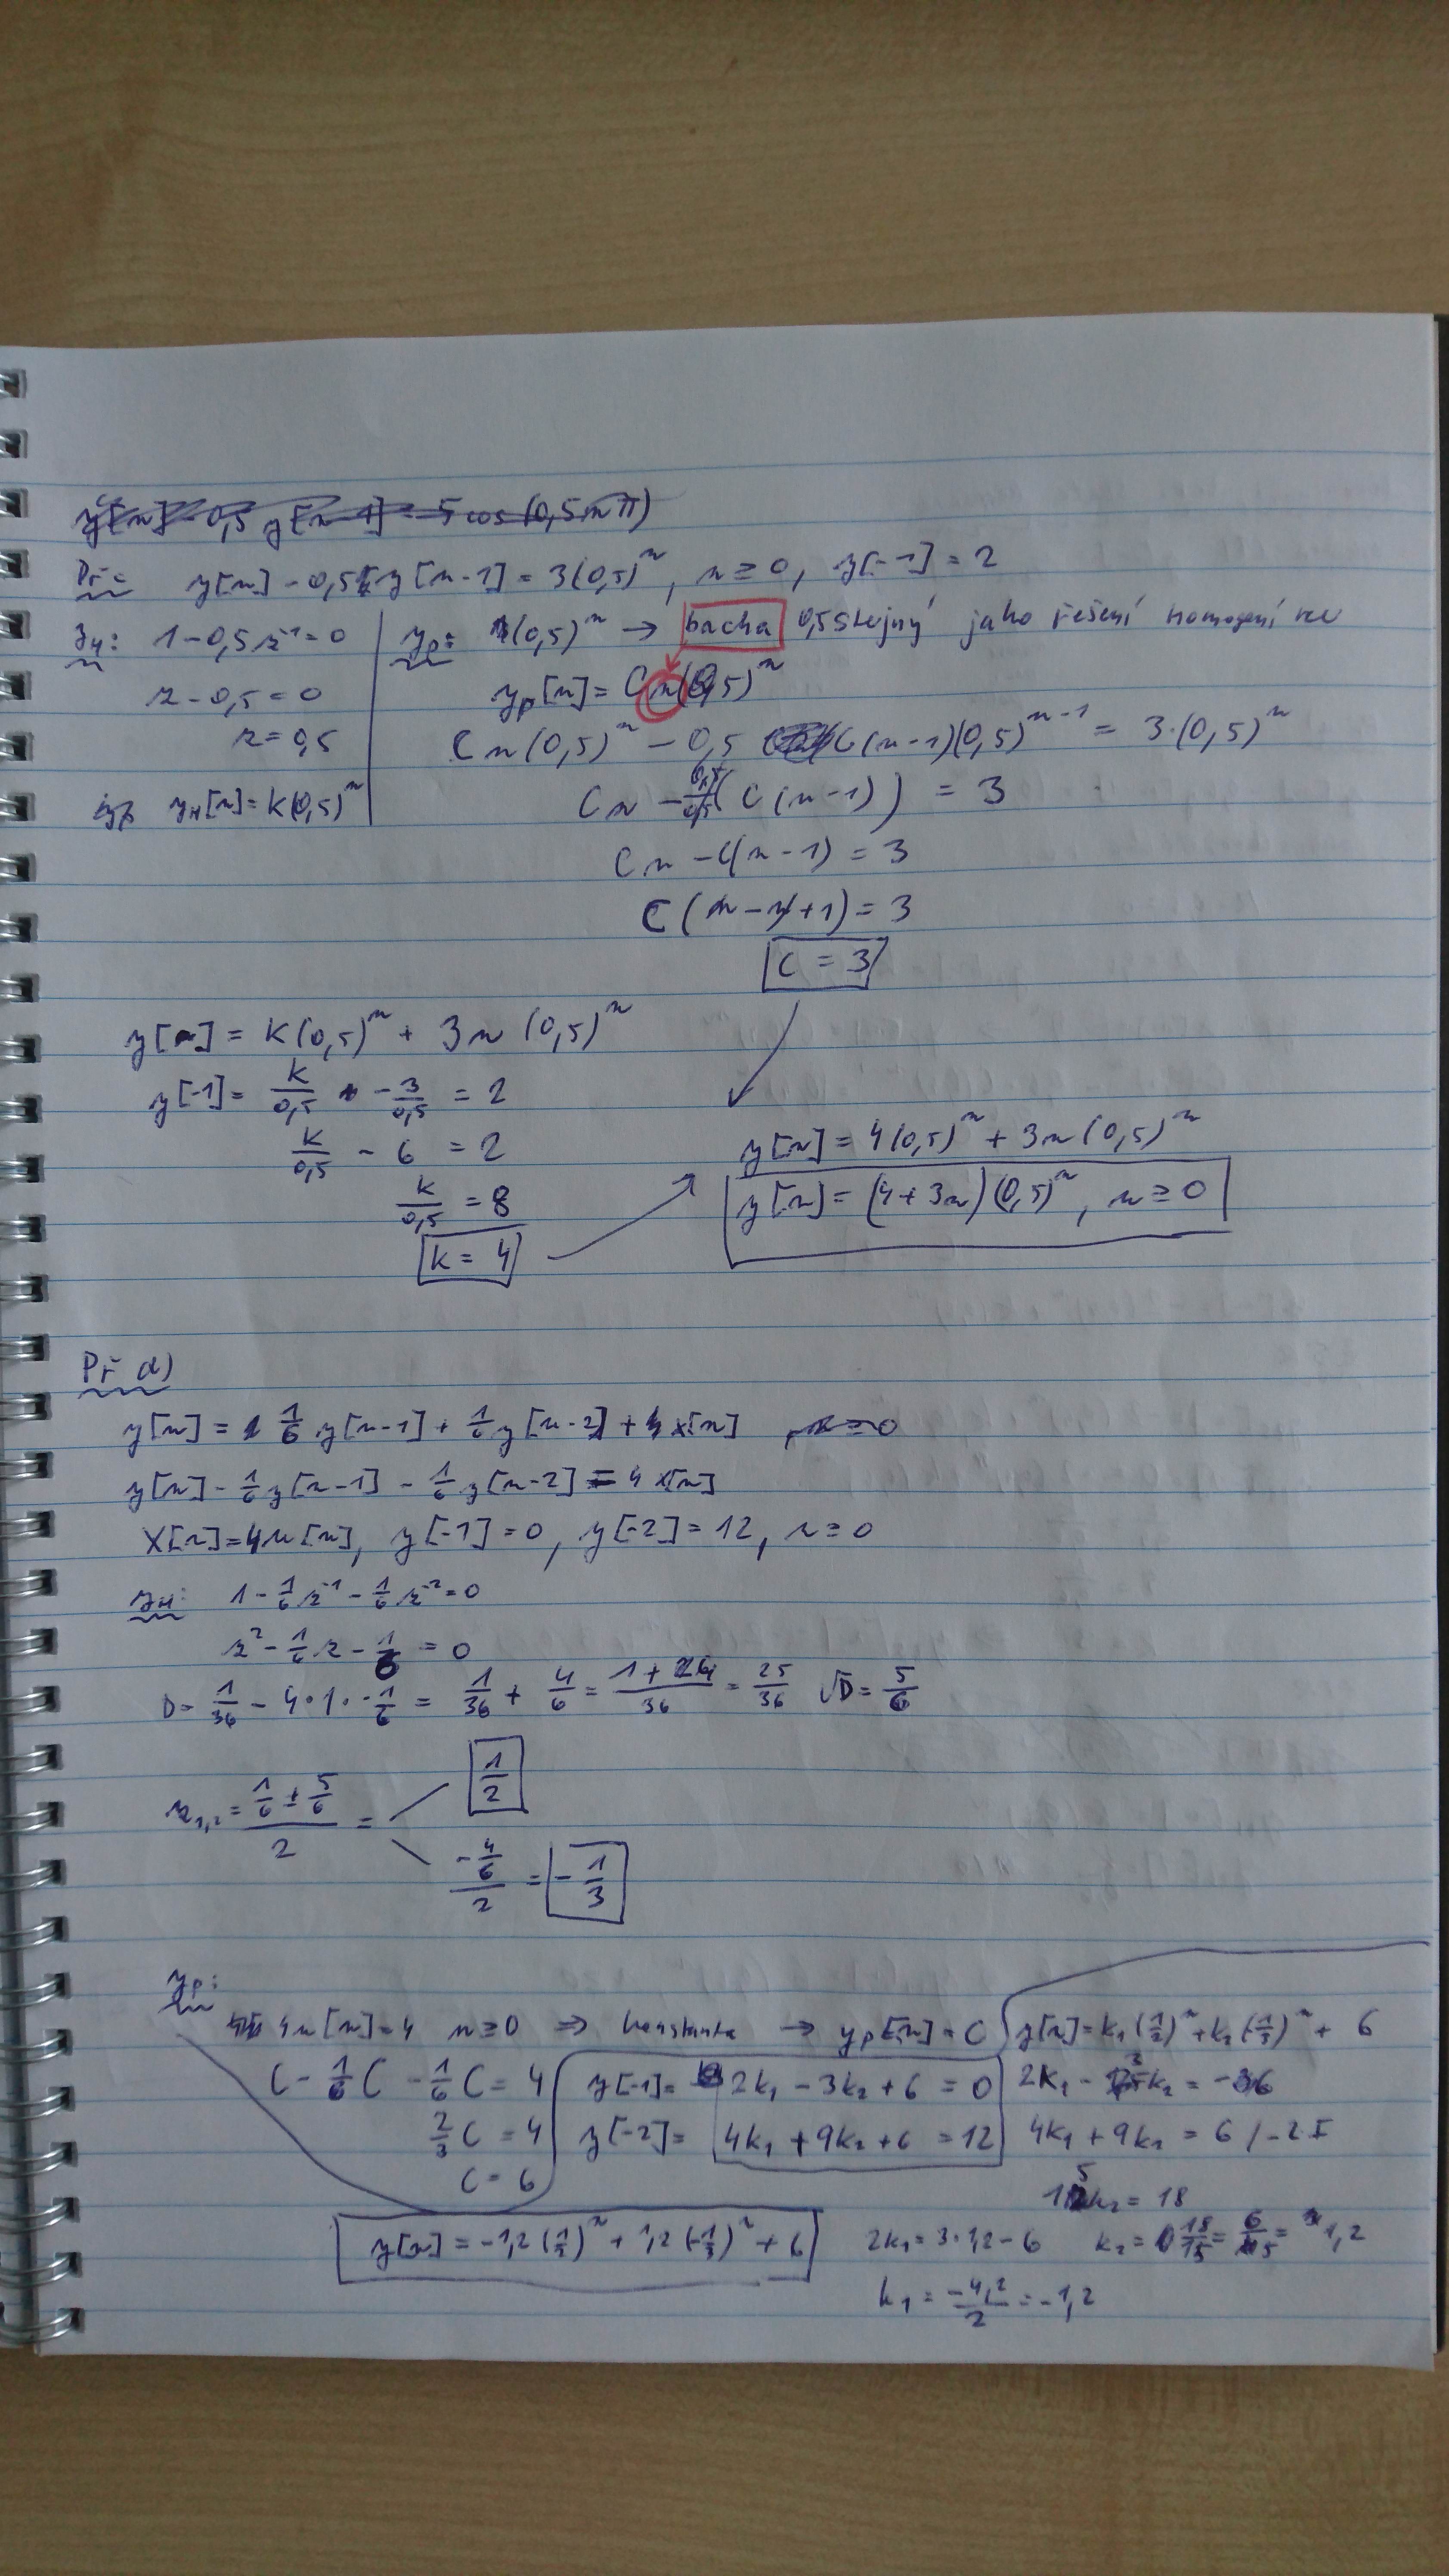 y[n] - 0,5 y[n-1] = 5 cos(0,5nπ)
Př: y[n] - 0,5 y[n-1] = 3(0,5)^n, n ≥ 0, y[-1] = 2
yH: 1 - 0,5z^-1 = 0
z - 0,5 = 0
z = 0,5
yH[n] = K(0,5)^n
yp: (0,5)^n → bacha 0,5 stejný jako řešení homogení
yp[n] = Cn(0,5)^n
Cn(0,5)^n - 0,5 C(n-1)(0,5)^{n-1} = 3·(0,5)^n
Cn - 0,5/0,5 (C(n-1)) = 3
Cn - C(n-1) = 3
C(n-n+1) = 3
C = 3
y[n] = K(0,5)^n + 3n(0,5)^n
y[-1] = K/0,5 - 3/0,5 = 2
K/0,5 - 6 = 2
K/0,5 = 8
K = 4
y[n] = 4(0,5)^n + 3n(0,5)^n
y[n] = (4+3n)(0,5)^n, n ≥ 0
Př d)
y[n] = 1/6 y[n-1] + 1/6 y[n-2] + 4 x[n]
y[n] - 1/6 y[n-1] - 1/6 y[n-2] = 4 x[n]
x[n] = 4u[n], y[-1] = 0, y[-2] = 12, n ≥ 0
yH: 1 - 1/6 z^-1 - 1/6 z^-2 = 0
z^2 - 1/6 z - 1/6 = 0
D = 1/36 - 4·1·-1/6 = 1/36 + 4/6 = (1+24)/36 = 25/36 √D = 5/6
z1,2 = (1/6 ± 5/6)/2 =
1/2
(-4/6)/2 = -1/3
yp:
4u[n] = 4 n ≥ 0 ⇒ konstanta → yp[n] = C
C - 1/6 C - 1/6 C = 4
2/3 C = 4
C = 6
y[n] = k1(1/2)^n + k2(-1/3)^n + 6
y[-1] = 2k1 - 3k2 + 6 = 0
y[-2] = 4k1 + 9k2 + 6 = 12
2k1 - 3k2 = -6
4k1 + 9k2 = 6 / -2I
15k2 = 18
k2 = 18/15 = 6/5 = 1,2
2k1 = 3·1,2 - 6
k1 = /2 = -1,2
y[n] = -1,2(1/2)^n + 1,2(-1/3)^n + 6